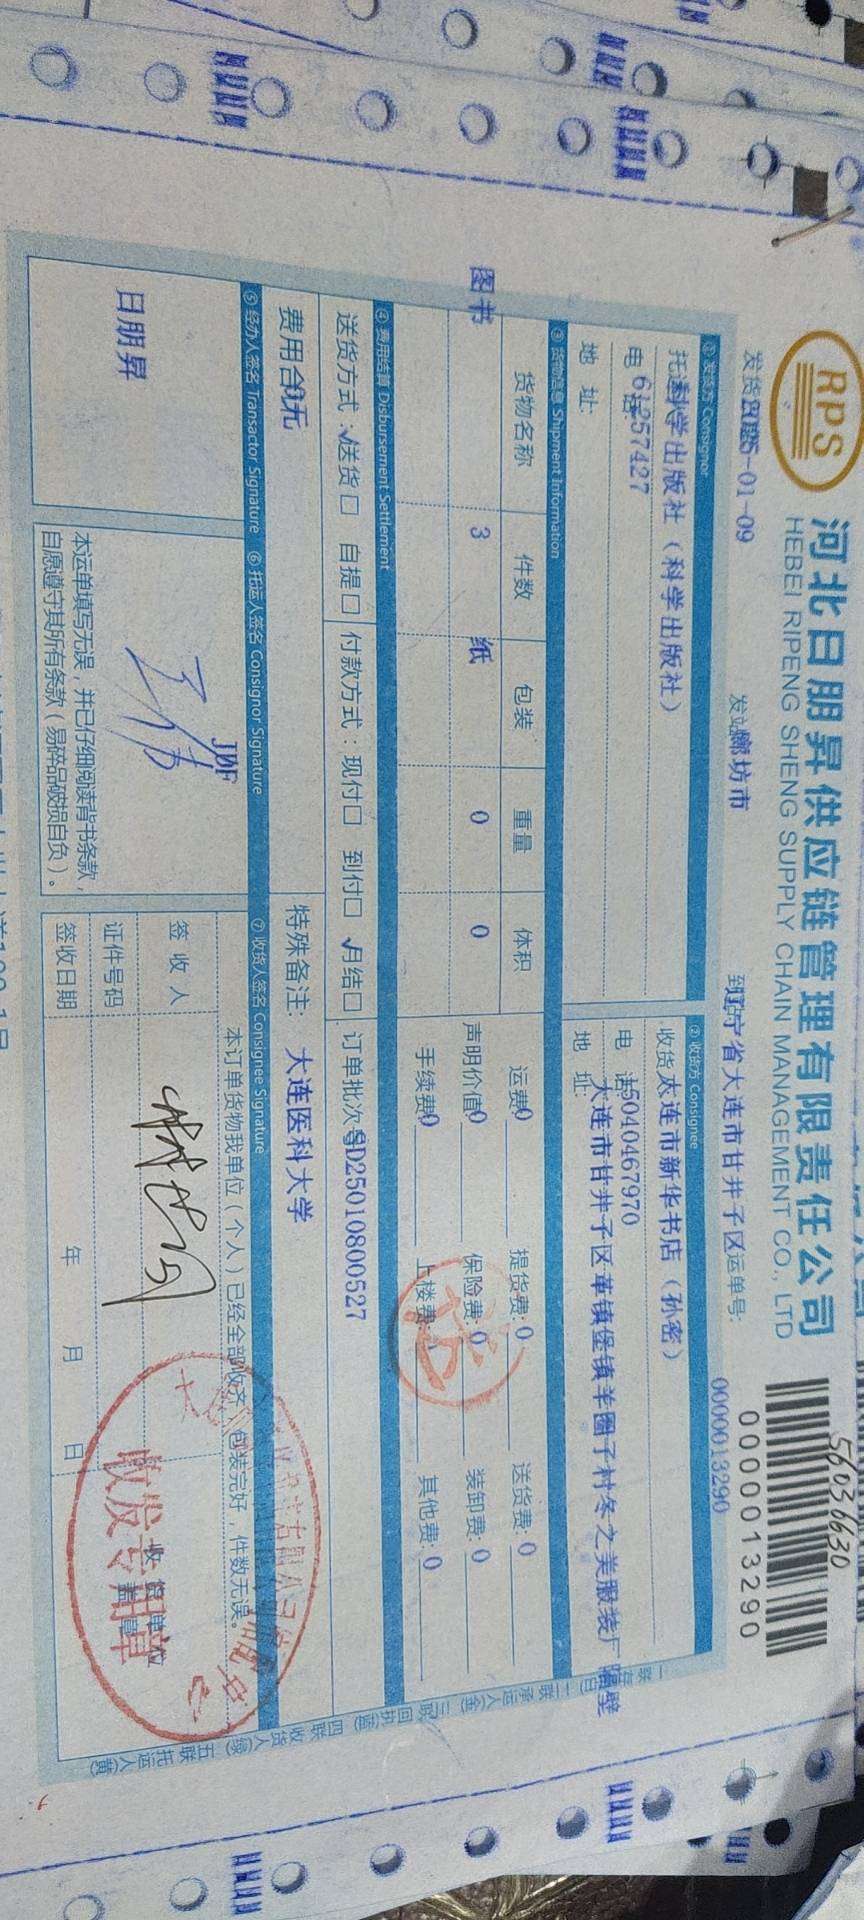 RPS
河北日朋昇供应链管理有限责任公司
HEBEI RIPENG SHENG SUPPLY CHAIN MANAGEMENT CO., LTD
56036630
0000013290
0000013290
发货日期2025-01-09
发站廊坊市
到站辽宁省大连市甘井子区
运单号:
① 发货方 Consignor
托运科学出版社(科学出版社)
电 话61257427
地 址:
② 收货方 Consignee
收货大连市新华书店(孙密)
电 话15040467970
地 址:大连市甘井子区革镇堡镇羊圈子村冬之美服装厂隔壁
③ 货物信息 Shipment Information
货物名称 件数 包装 重量 体积
图书 3 纸 0 0
运费0 提货费: 0 送货费: 0
声明价值0 保险费: 0 装卸费: 0
手续费0 上楼费: 其他费: 0
④ 费用结算 Disbursement Settlement
送货方式:√送货□ 自提□
付款方式:现付□ 到付□ √月结□
订单批次号SD250108000527
费用合计0元
特殊备注: 大连医科大学
⑤ 经办人签名 Transactor Signature
⑥ 托运人签名 Consignor Signature
⑦ 收货人签名 Consignee Signature
日朋昇
JDF
本运单填写无误,并已仔细阅读背书条款,
自愿遵守其所有条款(易碎品破损自负)。
本订单货物我单位(个人)已经全部收齐,包装完好,件数无误。
签 收 人
证件号码
签收日期
年 月 日
收 货 单 位
盖 章
收发专用章
二联承运人(金) 三联回执(蓝) 四联收货人(绿) 五联托运人(黄)